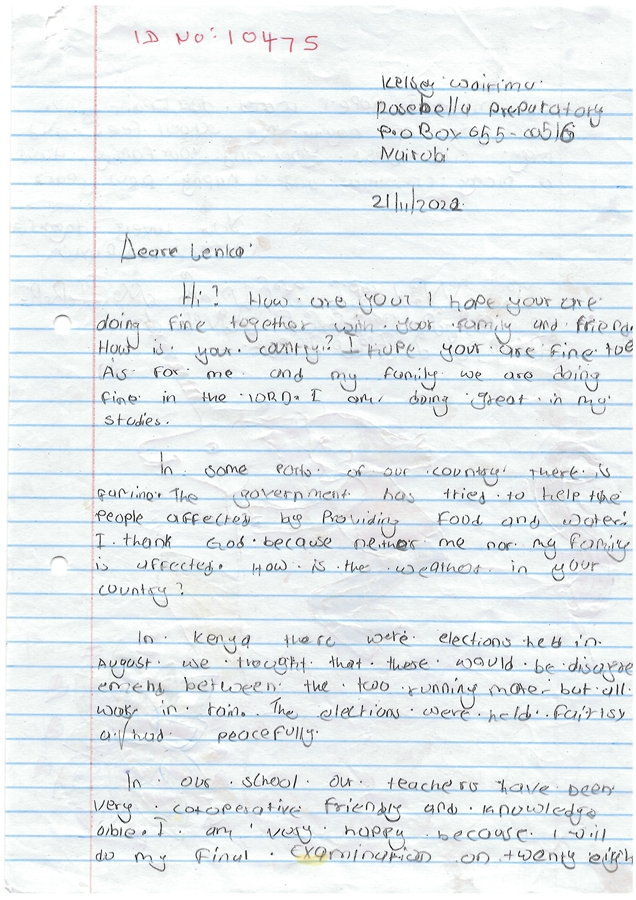 ID No: 10475
Kelsey Wairimu
Rosebella Preparatory
P.o Box 655-00516
Nairobi
21/11/2022
Deare Lenka
Hi? How are your I hope your are
doing fine together with your family and friend
How is your country? I hope your are fine toe
As for me and my family we are doing
fine in the lORD. I am doing great in my
studies.
In some parts of our country there is
famine. The government has tried to help the
people affected by Providing food and water.
I thank God because neither me nor my family
is affected. How is the weather in your
country?
In Kenya there were elections held in
August we thought that these would be disagre
emens between the two running mater but all
was in The elections were held
peacefully.
In our school our teachers have been
very co-operative friendly and knowledge
able. I am very happy because I will
do my final examination on twenty eigth